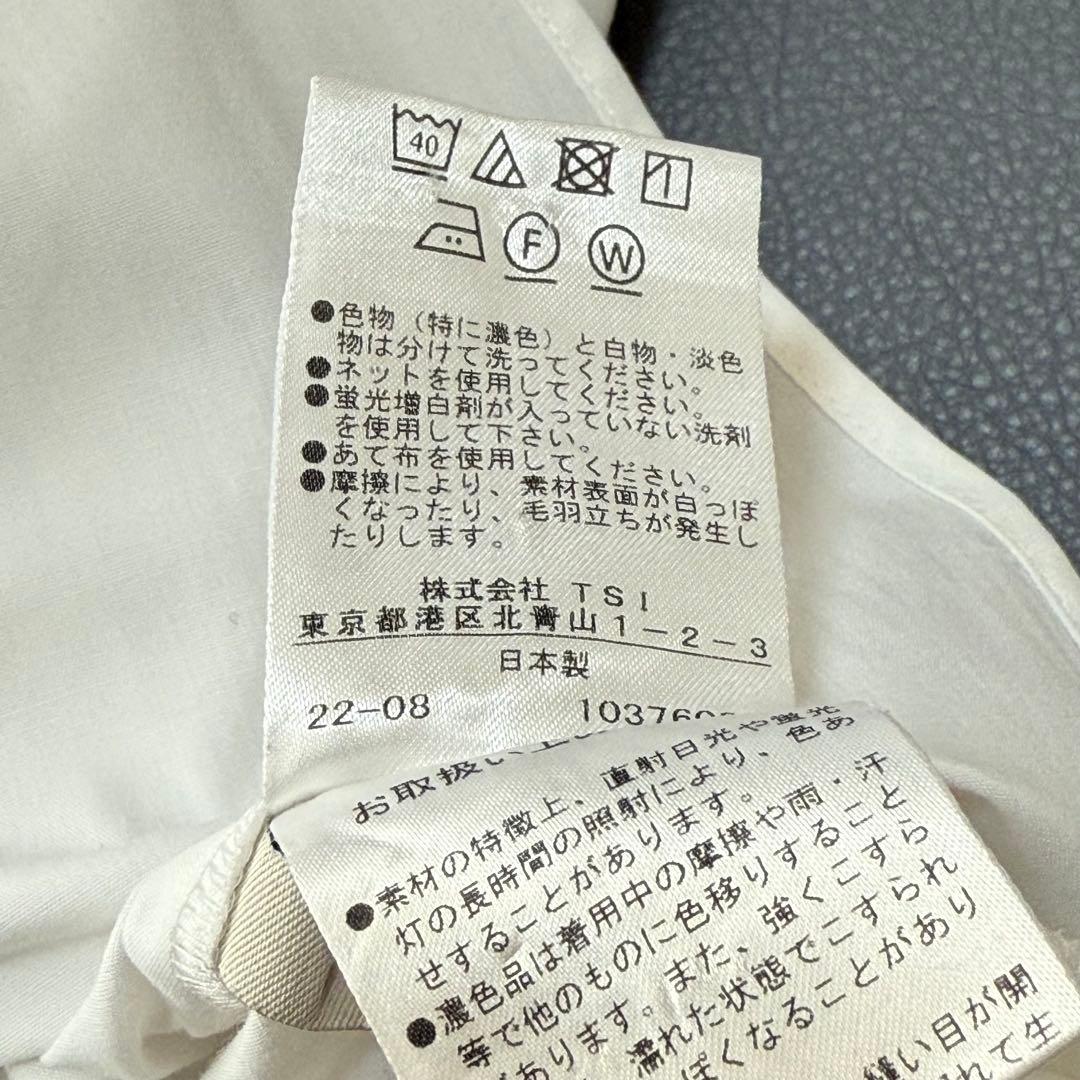 40
F W
●色物（特に濃色）と白物・淡色
物は分けて洗ってください。
●ネットを使用してください。
●蛍光増白剤が入っていない洗剤
を使用して下さい。
●あて布を使用してください。
●摩擦により、素材表面が白っぽ
くなったり、毛羽立ちが発生し
たりします。
株式会社 TSI
東京都港区北青山1-2-3
日本製
22-08 103760
お取扱い上
●素材の特徴上、直射日光や蛍光
灯の長時間の照射により、色あ
せすることがあります。
●濃色品は着用中の摩擦や雨・汗
等で他のものに色移りすること
があります。また、強くこすら
濡れた状態でこすられ
ぽくなることがあり
縫い目が開
れて生